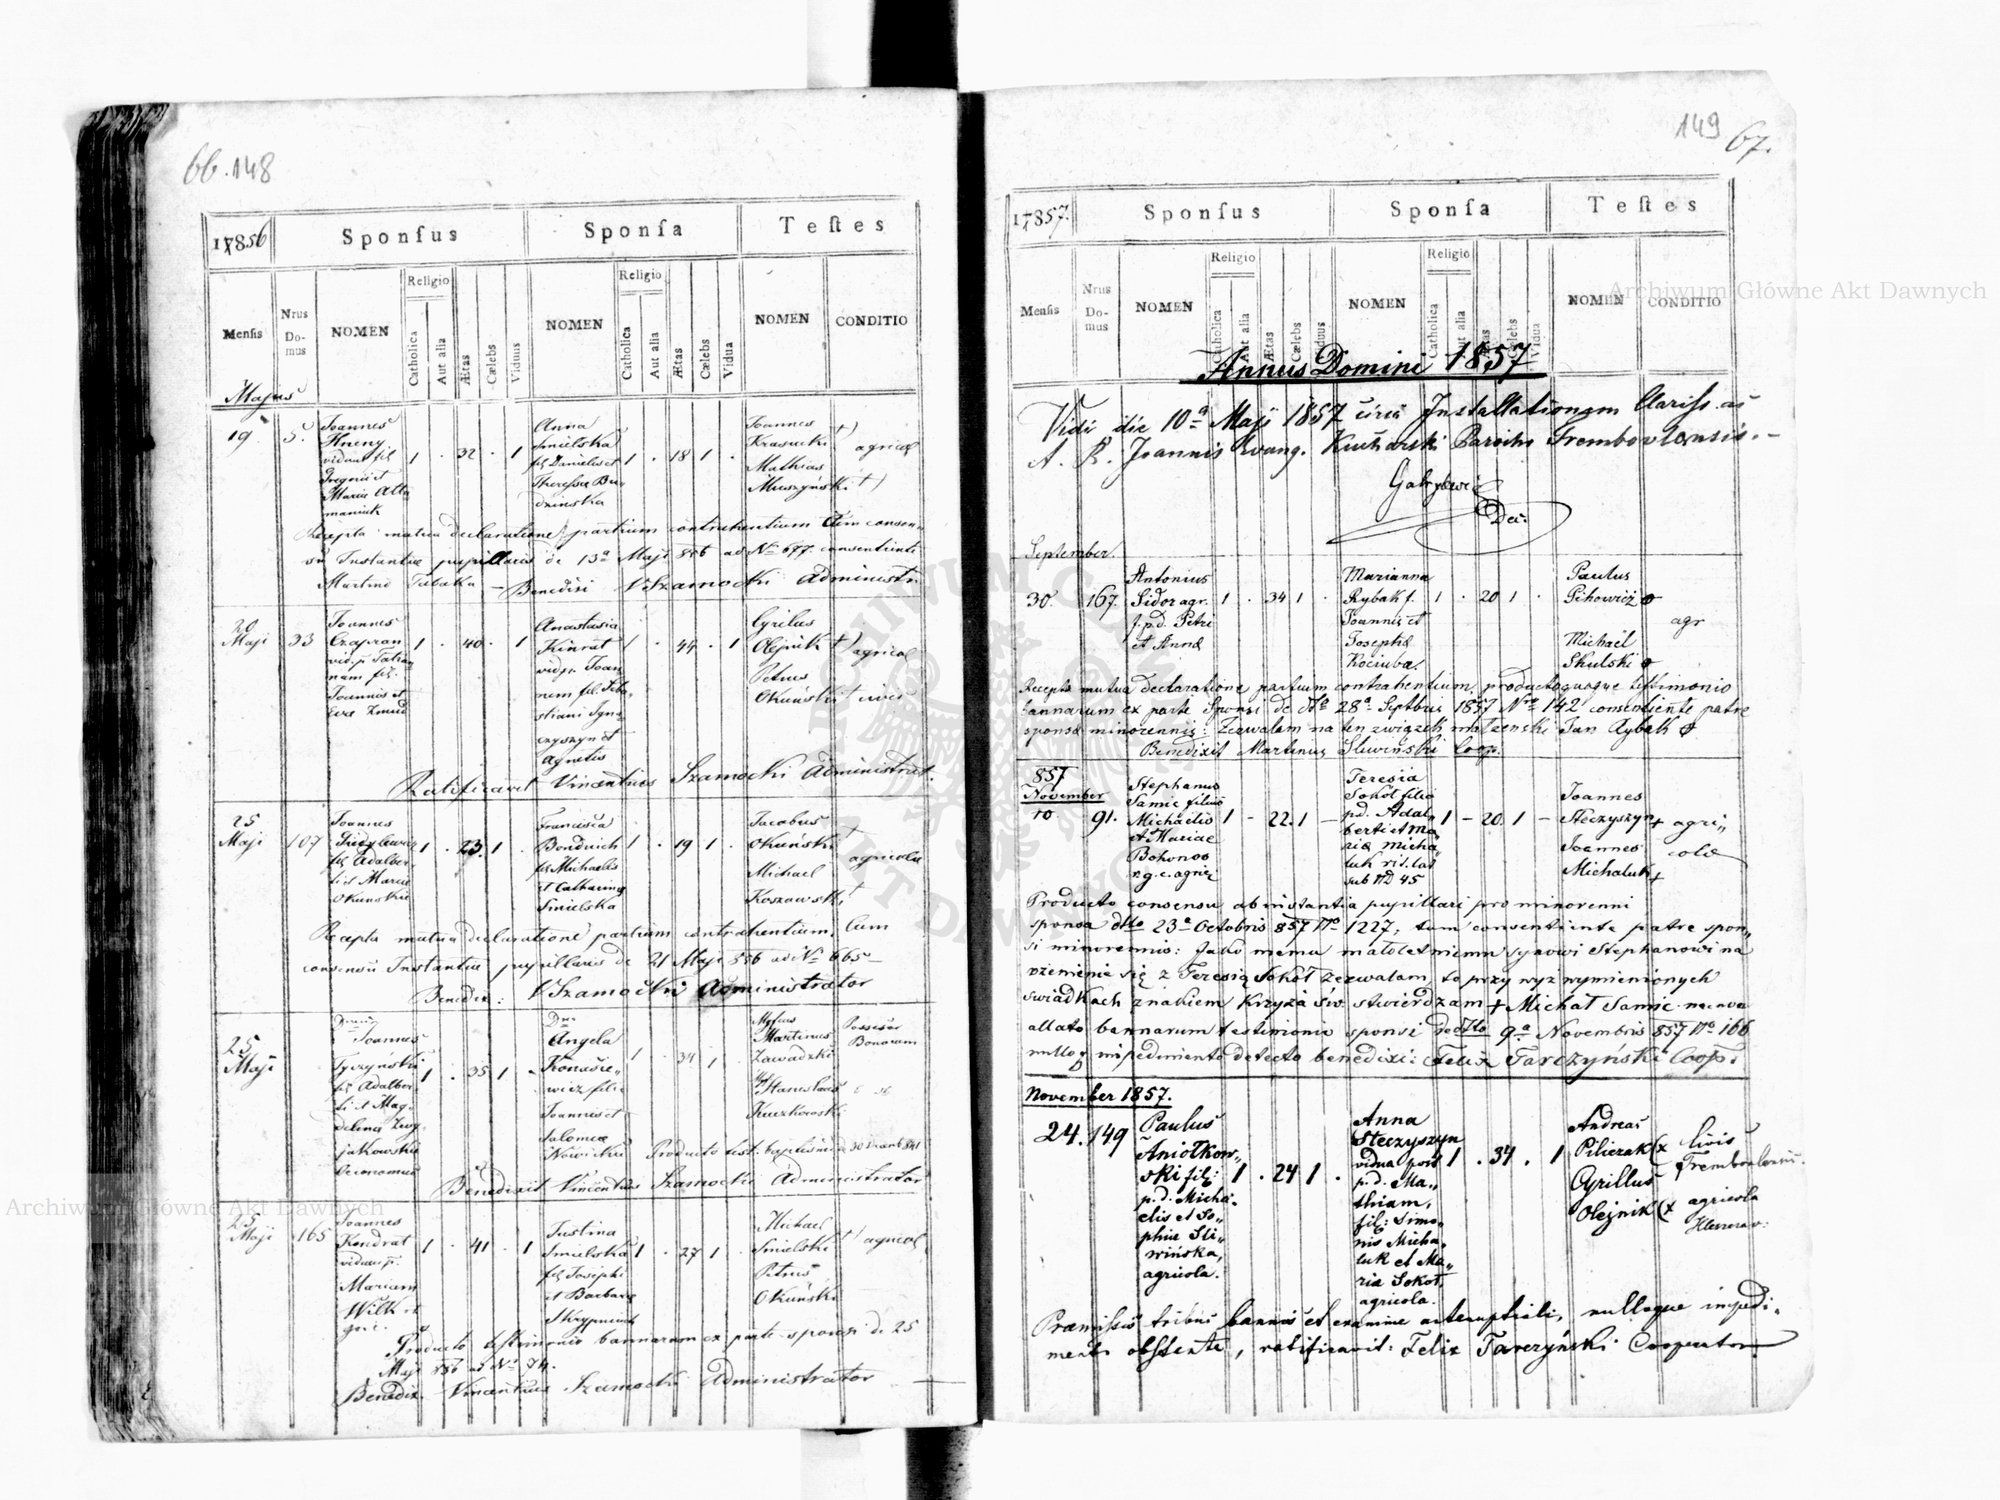 66. 148
17856
Sponsus
Sponsa
Testes
Mensis
Nrus Domus
NOMEN
Religio
Catholica
Aut alia
Ætas
Cælebs
Viduus
NOMEN
Religio
Catholica
Aut alia
Ætas
Cælebs
Vidua
NOMEN
CONDITIO
Majus
19
5.
Joannes
Hreny
viduus fil.
Gregorii et
Maria Ata
maniuk
1 . 32 . 1
Anna
Smielska
fil. Danielis et
Theressa Bu-
dzinska
1 . 18 1 .
Joannes
Krasucki +)
Mathias
Muszyński +)
agricol
Recepta mutua declaratione partium contrahentium cum consen-
su Instantia pupillaris de 13a Maji 856 ad No 677 consentiente
Martino Tabaka – Benedixi VSzamocki Administr
20
Maji
33
Joannes
Czapran
vid. p. Tatia
nam fil.
Joannis et
Eva Zmud
1 . 40 . 1
Anastasia
Kinrat
vid. p. Joan
nem fil. Seba-
stiani Igna-
czyszyn et
Agnetis
1 . 44 . 1
Cyrilus
Olejnik +)
Petrus
Okuński +
agricol
Ratificavit Vincentius Szamocki Administrat.
25
Maji
107
Joannes
fil. Adalber
ti et Maria
Okunska
1 . 23. 1
Francisca
Bondwich
fil. Michaelis
et Catharina
Smielska
1 . 19 1 .
Jacobus
Okuński
Michael
Koszowski
agricola
Recepta mutua declaratione partium contrahentium, Cum
consensu Instantia pupillaris de 21 Maji 856 ad No 665 –
Benedix: VSzamocki Administrator
25
Maji
Joannes
Tyczyński
fil. Adalber
ti et Mag-
delena Zwy-
jakowska
Oeconomus
1 . 35 1 .
Angela
Konasie-
wicz filia
Joannis et
Salomea
Nowicka
1 . 34 1 .
Martinus
Zawadzki
Stanislaus
Kuczkowski
Possessor
Bonorum
Producto test: baptismi
Benedixit Vincentius Szamocki Administrator
25
Maji
165
Joannes
Kondrat
viduus p.
Mariam
Wilk et
1 . 41 . 1
Justina
Smielska
fil. Josephi
et Barbara
Skrypniuk
1 . 27 1 .
Michael
Smielski
Petrus
Okuński
agricol
Producto testimonio bannorum ex parte sponsi de 25
Maji 856 ad No 74.
Benedix Vincentius Szamocki Administrator
149 67.
17857.
Sponsus
Sponsa
Testes
Mensis
Nrus Domus
NOMEN
Religio
Catholica
Aut alia
Ætas
Cælebs
Viduus
NOMEN
Religio
Catholica
Aut alia
Ætas
Cælebs
Vidua
NOMEN
CONDITIO
Annus Domini 1857
Vidi die 10a Maji 1857 circa Installationem Clariss. ac
A. R. Joannis Evang. Kucharski Parochi Trembovlensis. –
Dec:
September.
30.
167.
Antonius
Sidor agr.
f. p. d. Petri
et Anna
1 . 34 1 .
Marianna
Rybak f.
Joannis et
Josepha
Kociuba.
1 . 20 1 .
Paulus
Pihowicz
Michael
Skulski
agr
Recepta mutua declaratione partium contrahentium, productoquoque testimonio
bannorum ex parte Sponsi de dto 28a Septbris 1857 Nro 142 consentiente patre
sponsa minorennis: Zezwalam na ten związek małżenski Jan Rybak
Benedixit Martinus Sliwiński Coop.
857
November
10
91.
Stephanus
Samic filius
Michaelis
et Mariae
Bohonos
r. g. c. agric
1 – 22. 1 –
Teresia
Sokoł filia
p. d. Adal„
berti et Ma„
ria Micha„
luk rit. lat
sub ND 45
1 – 20. 1 –
Joannes
Steczyszyn +
Joannes
Michaluk +
agri„
cola
Producto consensu ab instantia pupillari pro minorenni
sponsa dtto 23a Octobris 857 No 1227, tum consentiente patre spon„
si minorennis: Jako memu małoletniemu synowi Stephanowi na
ożenienie się z Teresią Sokół zezwalam, to przy wyż wymienionych
swiadkach znakiem Krzyża św. stwierdzam + Michał Samic. nec non
allato bannorum testimonio sponsi de dtto 9a Novembris 857 No 166
nulloq impedimento detecto benedixi: Felix Tarczyński Coop:
November 1857.
24.
149
Paulus
Aniołkow„
ski fil:
p. d. Micha„
elis et So„
phia Sli„
wińska,
agricola.
1 . 24 1 .
Anna
Steczyszyn
vidua post
p. d. Ma„
thiam,
fil: Simo„
nis Micha„
luk et Ma„
ria Sokoł,
agricola.
1 . 34 . 1
Andreas
Piliczak (x
Cyrillus
Olejnik (x
Civis
Trembowlensis.
agricola
Praemissis tribus bannis et examine antenuptiali, nulloque impedi„
mento obstante, ratificavit: Felix Tarczyński Cooperator
Archiwum Główne Akt Dawnych
Archiwum Główne Akt Dawnych
ARCHIWUM GŁÓWNE AKT DAWNYCH